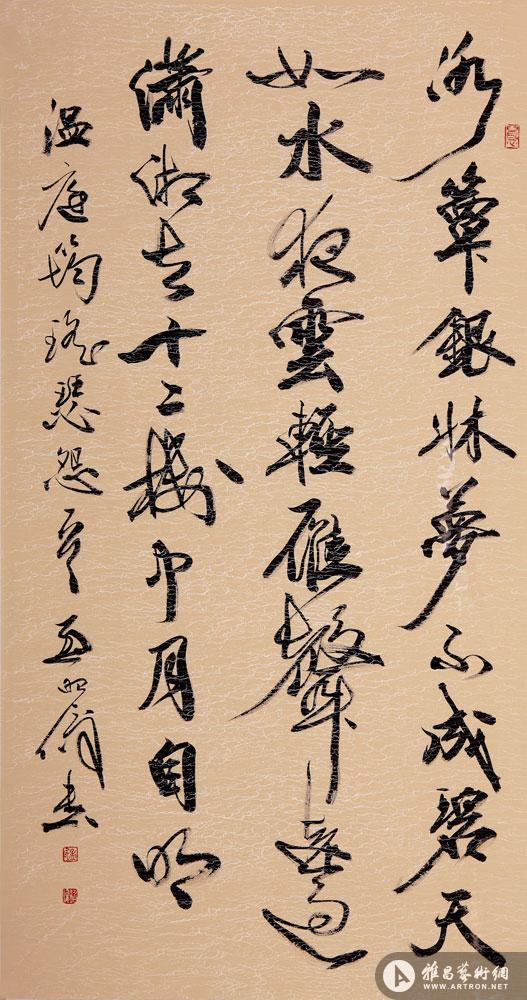 冰簟銀牀夢不成碧天
如水夜雲輕雁聲遠過
瀟湘去十二樓中月自明
温庭筠瑤瑟怨書
雅昌藝術網
WWW.ARTRON.NET